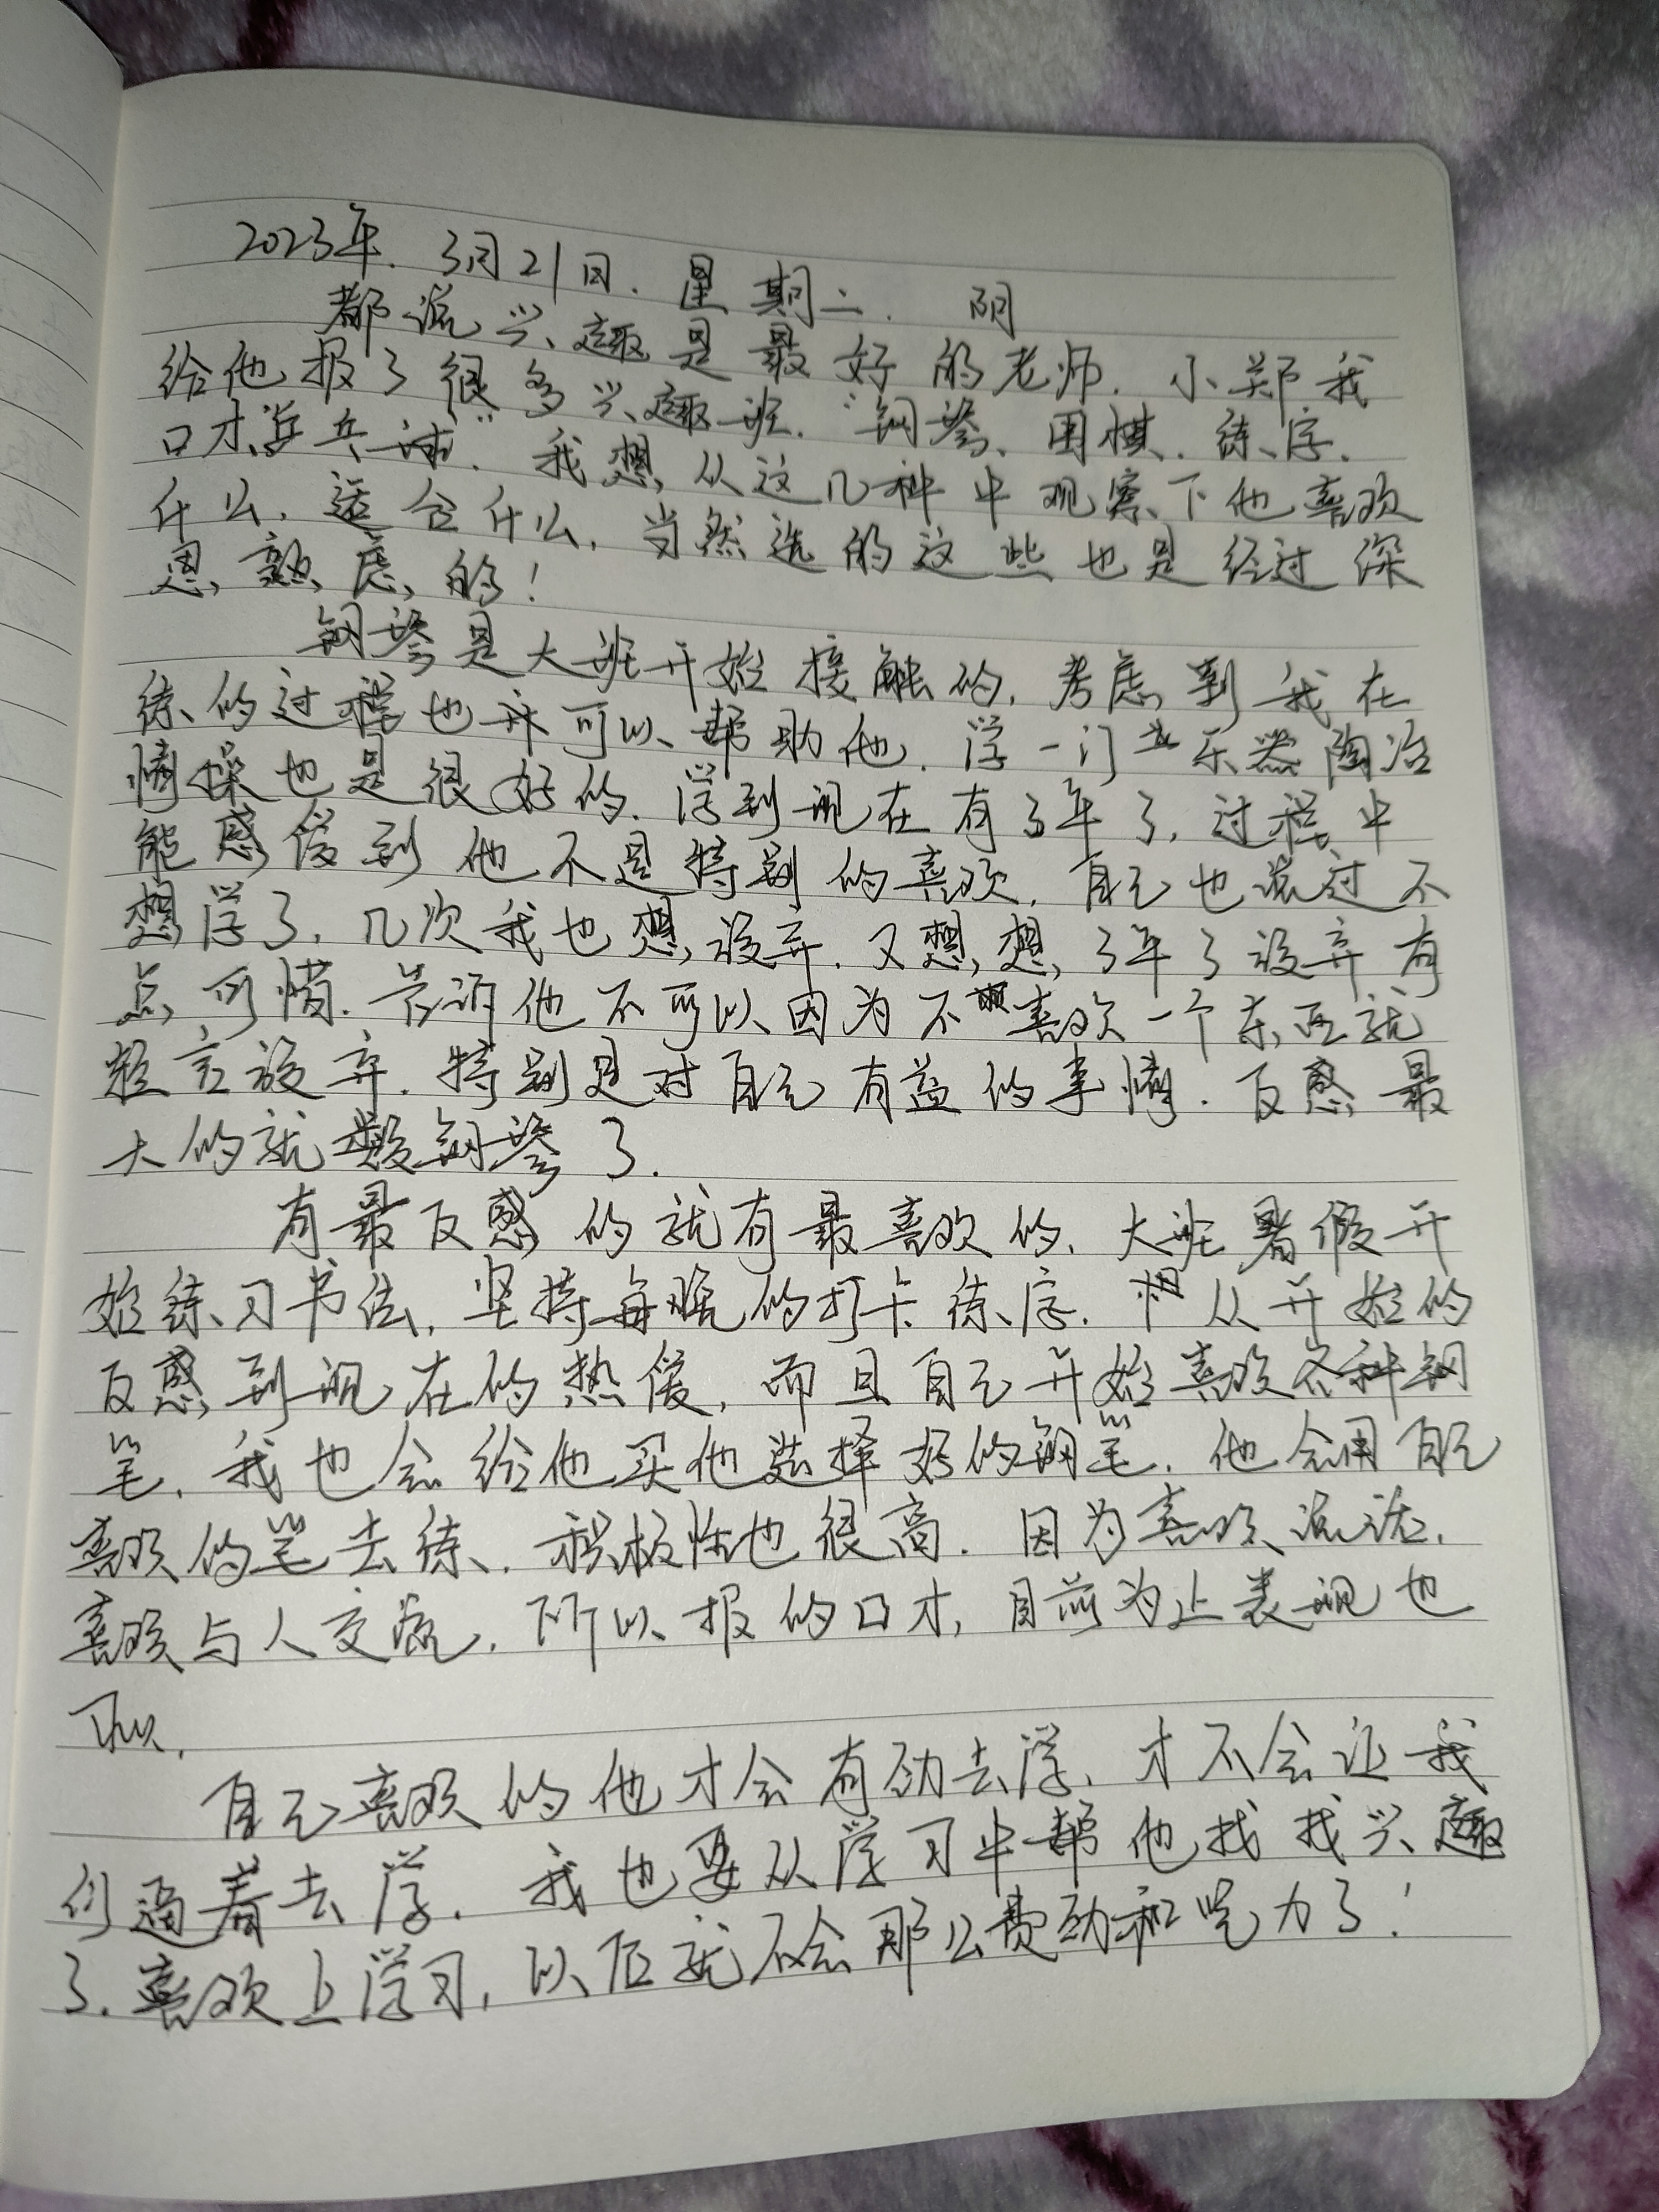 2023年.3月21日.星期二. 阴
都说兴趣是最好的老师.小郑我
给他报了很多兴趣班.“钢琴、围棋.练字.
口才.乒乓球”.我想从这几种中观察下他喜欢
什么,适合什么,当然选的这些也是经过深
思熟虑的!
钢琴是大班开始接触的,考虑到我在
练的过程也许可以帮助他.学一门乐器陶冶
情操也是很好的.学到现在有3年了,过程中
能感受到他不是特别的喜欢,自己也说过不
想学了,几次我也想放弃.又想想,3年了放弃有
点可惜.告诉他不可以因为不喜欢一个东西就
轻言放弃.特别是对自己有益的事情.反感最
大的就数钢琴了.
有最反感的就有最喜欢的,大班暑假开
始练习书法,坚持每晚的打卡练字.从开始的
反感到现在的热爱,而且自己开始喜欢各种钢
笔,我也会给他买他选择好的钢笔,他会用自己
喜欢的笔去练.积极性也很高.因为喜欢说话,
喜欢与人交流,所以报的口才,目前为止表现也
可以.
自己喜欢的他才会有劲去学,才不会让我
们逼着去学.我也要从学习中帮他找找兴趣
了.喜欢上学习,以后就不会那么费劲和吃力了!